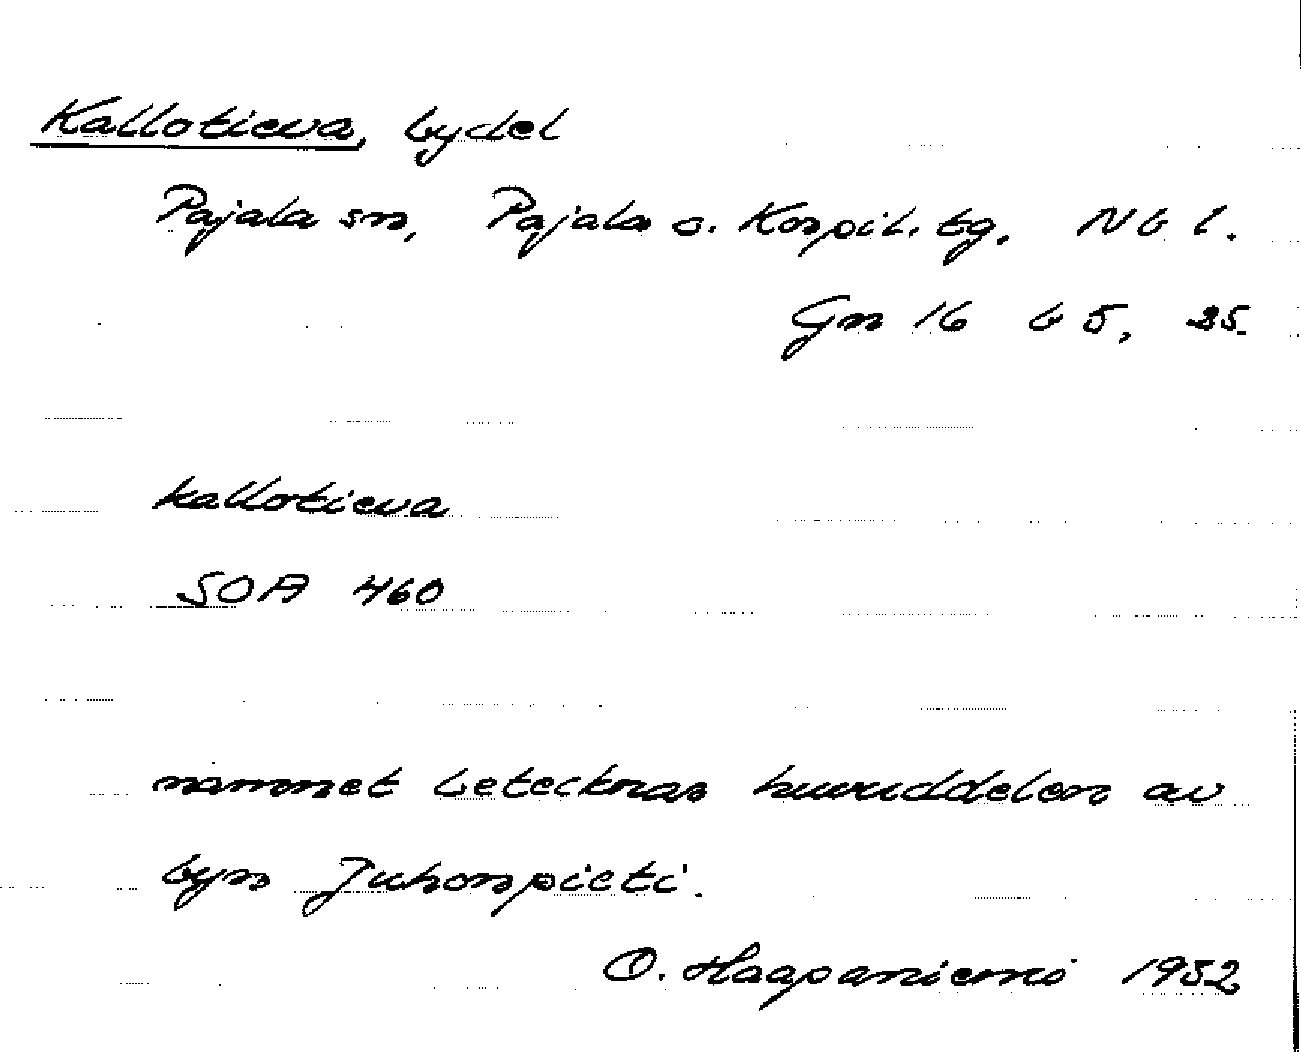 Kallotieva, bydel
Pajala sn, Pajala o. Korpil. tg. Nb l.
Gn 16 b 5, 25.
kallotieva
SOA 460
namnet betecknar huvuddelen av
byn Juhonpieti.
O. Haapaniemi 1952